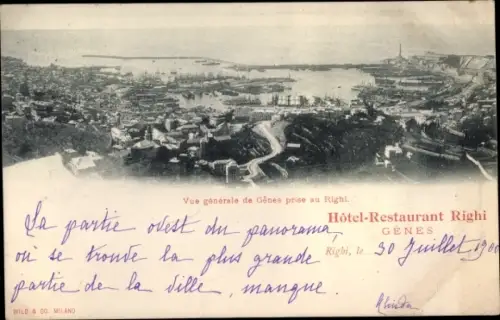 Vue générale de Gênes prise au Righi.
Hôtel-Restaurant Righi
GÊNES
Righi, le 30 Juillet 1900
La partie ouest du panorama,
où se trouve la plus grande
partie de la ville, manque.